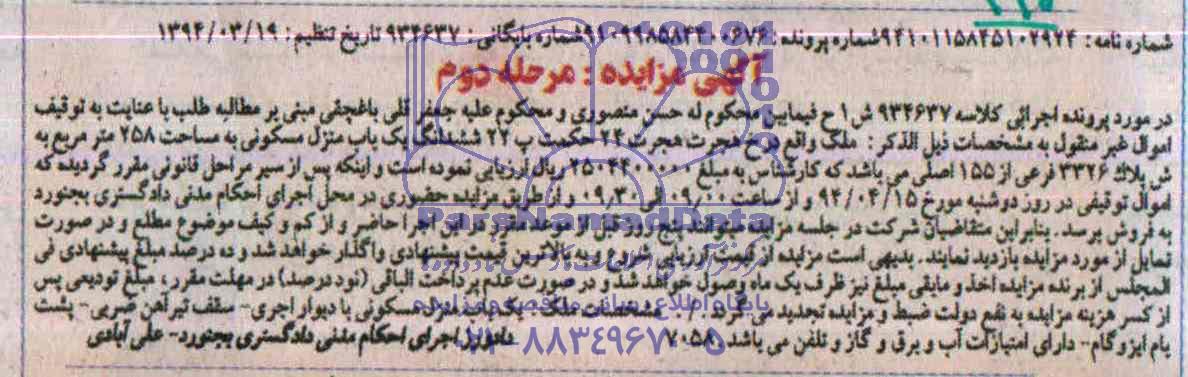 شماره نامه: ۹۴۱۰۱۱۵۸۴۵۱۰۲۹۲۴ شماره پرونده: ۹۱۰۹۹۸۵۸۴۴۰۰۶۷۶ شماره بایگانی: ۹۳۴۶۳۷ تاریخ تنظیم: ۱۳۹۴/۰۳/۱۹
آگهی مزایده: مرحله دوم
در مورد پرونده اجرائی کلاسه ۹۳۴۶۳۷ ش ۱ ح فیمابین محکوم له حسن منصوری و محکوم علیه جعفر قلی باغچقی مبنی بر مطالبه طلب با عنایت به توقیف
اموال غیر منقول به مشخصات ذیل الذکر: ملک واقع در خ هجرت هجرت ۲۴ حکمت پ ۲۷ ششدانگ یک باب منزل مسکونی به مساحت ۲۵۸ متر مربع به
ش پلاک ۳۳۲۶ فرعی از ۱۵۵ اصلی می باشد که کارشناس به مبلغ ۲۵۰۴۴۰۰۰۰۰ ریال ارزیابی نموده است و اینکه پس از سیر مراحل قانونی مقرر گردیده که
اموال توقیفی در روز دوشنبه مورخ ۹۴/۰۴/۱۵ و از ساعت ۰۹٫۰۰ الی ۰۹٫۳۰ و از طریق مزایده حضوری در محل اجرای احکام مدنی دادگستری بجنورد
به فروش برسد. بنابراین متقاضیان شرکت در جلسه مزایده میتوانند پنج روز قبل از موعد مقرر در این اجرا حاضر و از کم و کیف موضوع مطلع و در صورت
تمایل از مورد مزایده بازدید نمایند. بدیهی است مزایده از قیمت ارزیابی شروع و به بالاترین قیمت پیشنهادی واگذار خواهد شد و ده درصد مبلغ پیشنهادی فی
المجلس از برنده مزایده اخذ و مابقی مبلغ نیز ظرف یک ماه وصول خواهد شد و در صورت عدم پرداخت الباقی (نود درصد) در مهلت مقرر، مبلغ تودیعی پس
از کسر هزینه مزایده به نفع دولت ضبط و مزایده تجدید می گردد./ مشخصات ملک- یک باب منزل مسکونی با دیوار اجری- سقف تیرآهن ضربی- پشت
بام ایزوگام- دارای امتیازات آب و برق و گاز و تلفن می باشد. ۷۷۰۵۸ دادورز اجرای احکام مدنی دادگستری بجنورد- علی آبادی
ParsNamadData
پایگاه اطلاع رسانی مناقصه و مزایده
۰۲۱-۸۸۳۴۹۶۷۰-۵